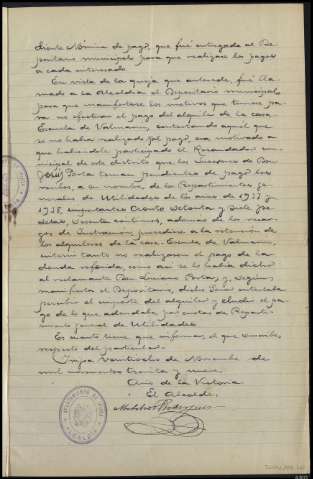 siente Nómina de pago, que fué entregada al De-
positario municipal para que realizara los pagos
a cada interesado.
En vista de la queja que antecede, fué lla-
mado a la Alcaldía el Depositario municipal
para que manifestara los motivos que tuviera pa-
ra no efectuar el pago del alquiler de la casa-
Escuela de Valmarín, contestando aquel que
no se había realizado tal pago era motivado a
que había participado el Recaudador mu-
nicipal de este distrito que los Sucesores de Don
José Porta tenían pendientes de pago los
recibos, a su nombre de los Repartimientos ge-
nerales de Utilidades de los años de 1937 y
1938, importantes Ciento setenta y siete pe-
setas, sesenta céntimos, además de los recar-
gos de Instrucción procediera a la retención de
los alquileres de la casa-Escuela de Valmarín,
interin tanto no realizasen el pago de la
deuda referida, como así se lo había dicho
al reclamante Don Luciano Porta, y según
manifiesta el Depositario, dicho Señor intentaba
percibir el importe del alquiler y eludir el pa-
go de lo que adeudaba por cuotas de Reparti-
miento general de Utilidades.
Es cuanto tiene que informar, el que suscribe,
respecto del particular.
veintiseis de Noviembre de
mil novecientos treinta y nueve.
Año de la Victoria
El Alcalde,
Rodriguez
ALCALDIA